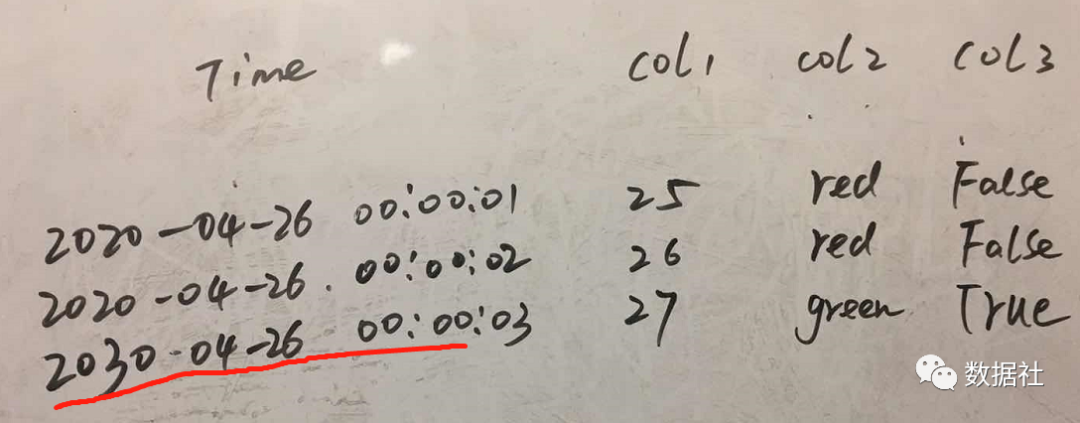 Time col1 col2 col3
2020-04-26 00:00:01 25 red False
2020-04-26. 00:00:02 26 red False
2030-04-26 00:00:03 27 green True
数据社